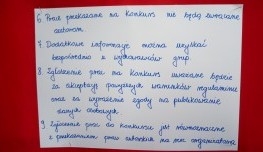 6. Prace przekazane na konkurs nie będą zwracane
autorom
7. Dodatkowe informacje można uzyskać
bezpośrednio u wychowawców grup
8. Zgłoszenie prac na konkurs uważane będzie
za akceptację powyższych warunków regulaminu
oraz za wyrażenie zgody na publikowanie
danych osobowych
9. Zgłoszenie prac do konkursu jest równoznaczne
z przekazaniem praw autorskich na rzecz organizatora